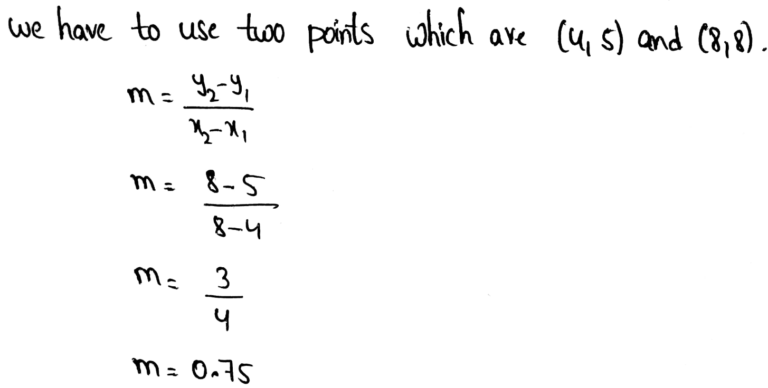 we have to use two points which are (4, 5) and (8,8).
m = y₂-y₁
x₂-x₁
m = 8-5
8-4
m = 3
4
m = 0.75